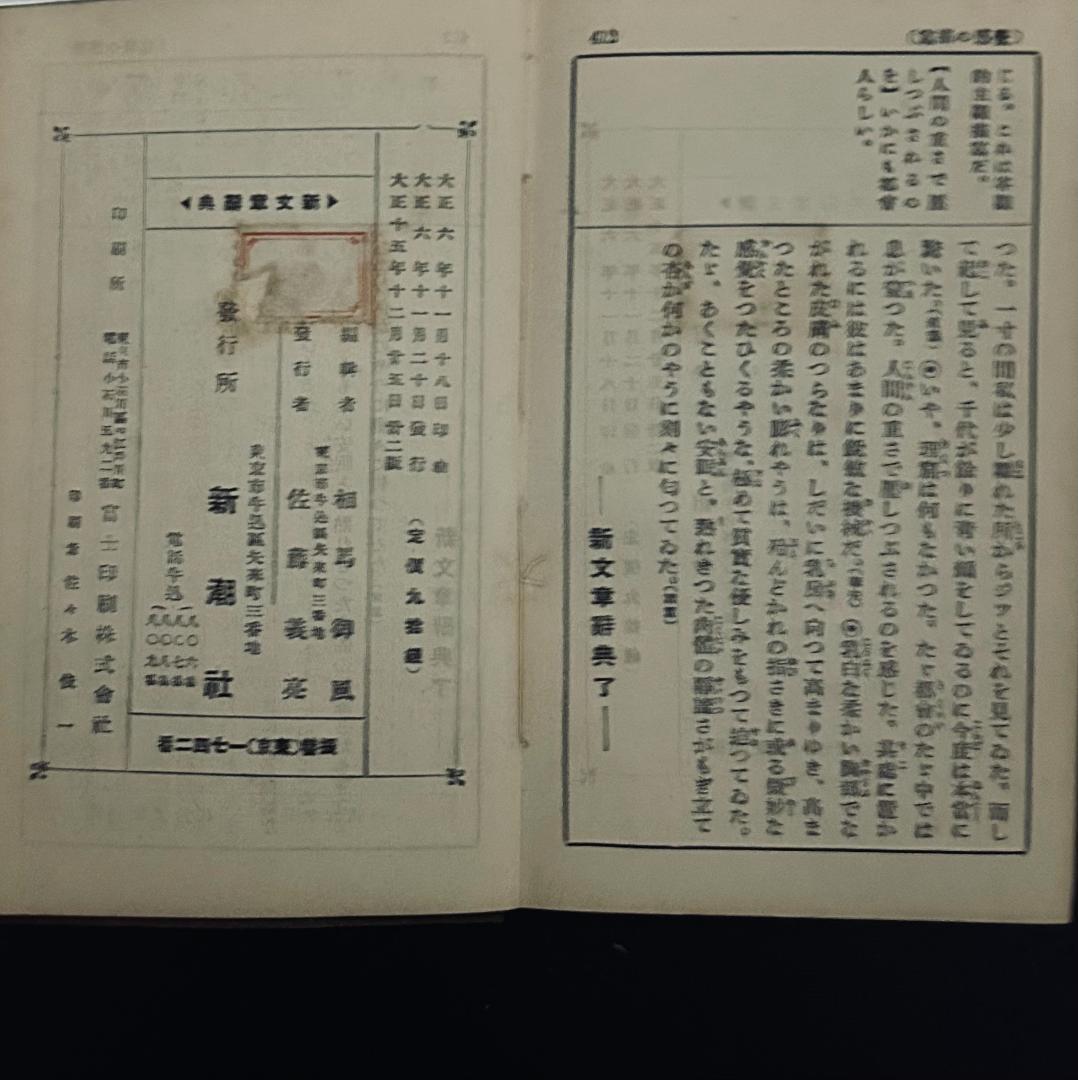 412
(覺感の部電)
にる。これは芥龍
的主龍描寫だ。
【人間の重さで壓
しつぶされるの
を】いかにも都會
人らしい。
つた。一寸の間私は少し離れた所からジッとそれを見てゐた。而し
て起して見ると、千代が餘りに靑い顏をしてゐるのに今度は本當に
驚いた。 ◉いや、理窟は何もなかつた。たゞ都會のたゞ中では
息が窒つた。人間の重さで壓しつぶされるのを感じた。其處に置か
れるには彼はあまりに銳敏な機械だ。(春夫) ◉乳白な柔かい胸部でな
がれた皮膚のつらなりは、しだいに乳房へ向つて高まりゆき、高ま
つたところの柔かい膨れやうは、殆んどかれの指さきに或る微妙な
感覺をつたひくるやうな、極めて質實な優しみをもつて迫つてゐた。
たゞ、あくこともない安眠と、熟れきつた肉體の靜謐さがもぎ立て
の杏か何かのやうに刻々に匂つてゐた。(犀星)
新文章辭典 了
大正六年十一月十八日印刷
大正六年十一月二十日發行
大正十五年十二月廿五日廿二版
(定價九拾錢)
新文章辭典
編輯者 相馬御風
東京市牛込區矢來町三番地
發行者 佐藤義亮
東京市牛込區矢來町三番地
發行所 新潮社
電話牛込
振替(東京)一七四二番
印刷所
富士印刷株式會社
印刷者 佐々木俊一